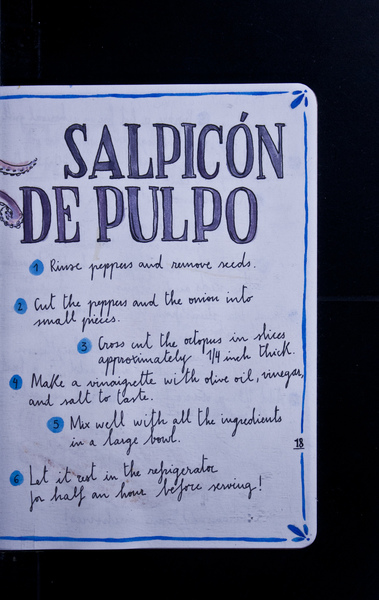 SALPICÓN
DE PULPO
1 Rinse peppers and remove seeds.
2 Cut the peppers and the onion into
small pieces.
3 Cross cut the octopus in slices
approximately 1/4 inch thick.
4 Make a vinaigrette with olive oil, vinegar,
and salt to taste.
5 Mix well with all the ingredients
in a large bowl.
18
6 Let it rest in the refrigerator
for half an hour before serving!